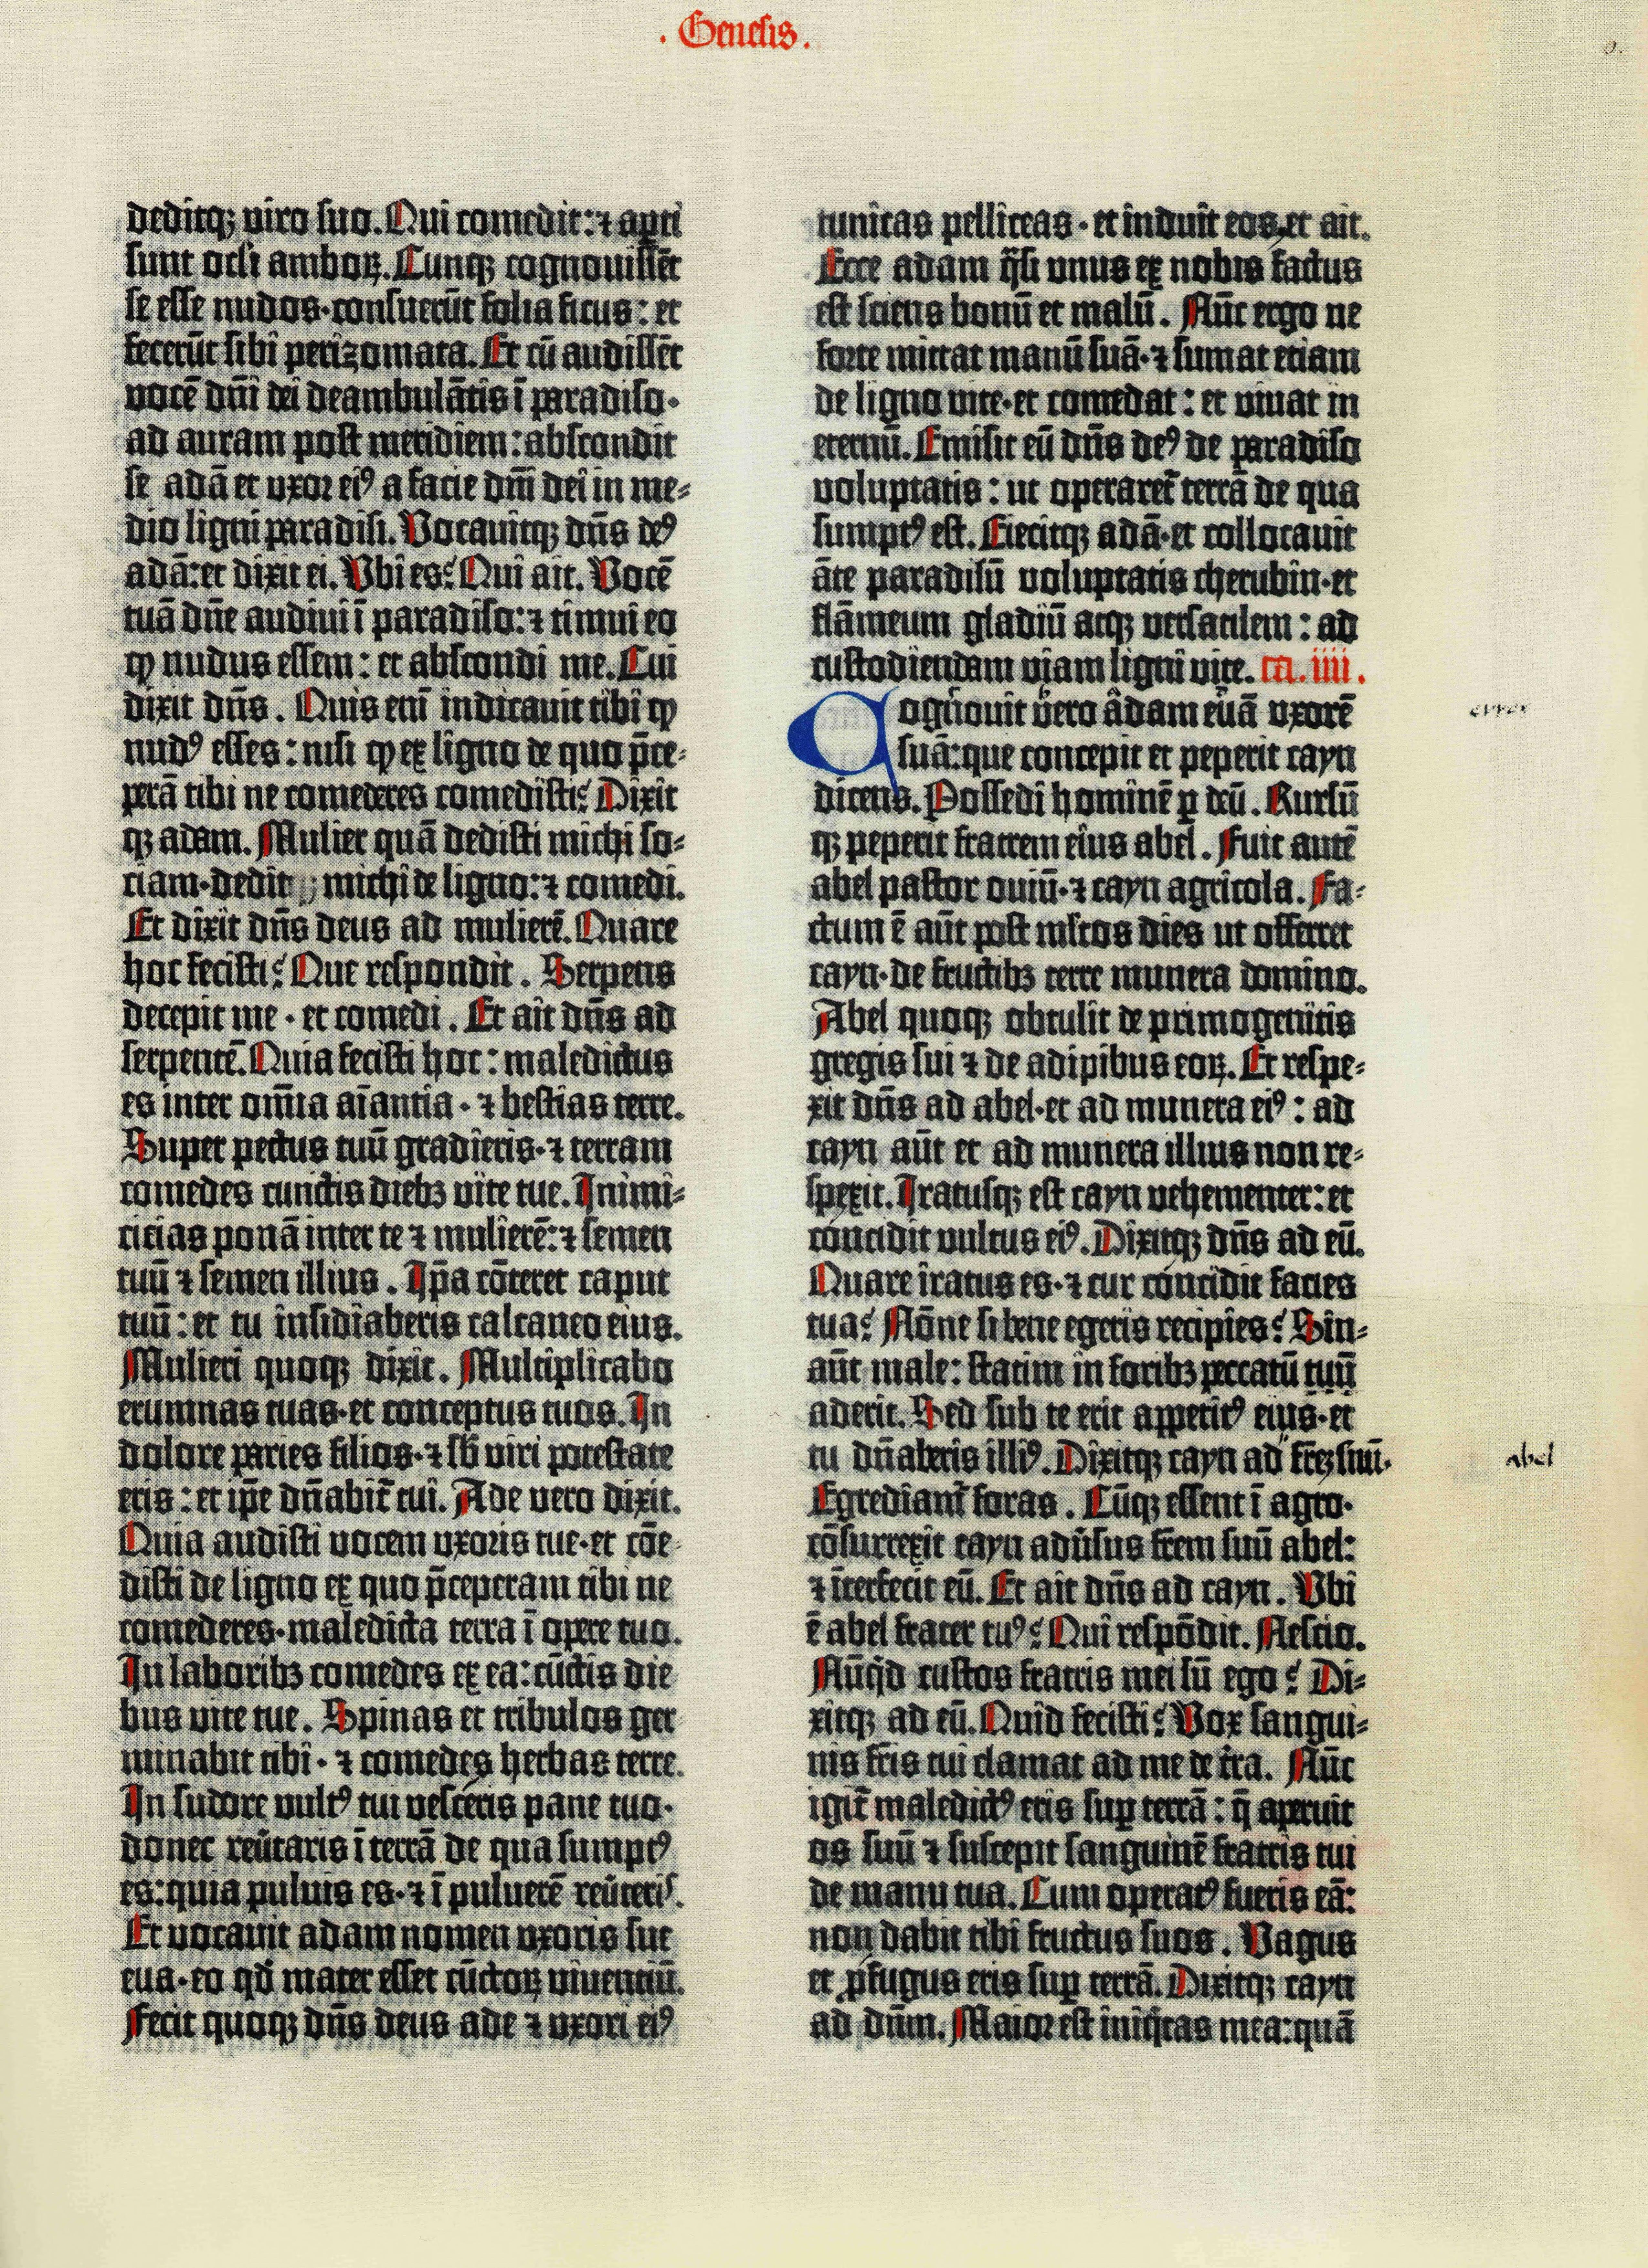 . Genesis .
deditq; viro suo. Qui comedit: ⁊ aꝑti
sunt oc͞li amboꝝ. Cunq; cognouissēt
se esse nudos·consuerūt folia ficus: et
fecerūt sibi perizomata. Et cū audissēt
vocē dn̄i dei deambulātis ī paradiso·
ad auram post meridiem: abscondit
se adā et vxor eiꝰ a facie dn̄i dei in me-
dio ligni paradisi. Vocauitq; dn̄s deꝰ
adā: et dixit ei. Vbi es? Qui ait. Vocē
tuā dn̄e audiui ī paradiso: ⁊ timui eo
ꝙ nudus essem: et abscondi me. Cui
dixit dn̄s. Quis eni͞ indicauit tibi ꝙ
nudꝰ esses: nisi ꝙ ex ligno de quo p̄ce-
perā tibi ne comederes comedisti? Dixit
q; adam. Mulier quā dedisti michi so-
ciam·dedit michi de ligno: ⁊ comedi.
Et dixit dn̄s deus ad mulierē. Quare
hoc fecisti? Que respondit. Serpens
decepit me · et comedi. Et ait dn̄s ad
serpentē. Quia fecisti hoc: maledictus
es inter om̄ia aīantia · ⁊ bestias terre.
Super pectus tuū gradieris· ⁊ terram
comedes cunctis diebꝫ vite tue. Inimi-
citias ponā inter te ⁊ mulierē: ⁊ semen
tuū ⁊ semen illius. Ip̄a cōteret caput
tuū: et tu insidiaberis calcaneo eius.
Mulieri quoq; dixit. Multiplicabo
erumnas tuas·et conceptus tuos. In
dolore paries filios· ⁊ sb̄ viri potestate
eris: et ip̄e dn̄abit᷑ tui. Ade vero dixit.
Quia audisti vocem vxoris tue·et cōe
disti de ligno ex quo p̄ceperam tibi ne
comederes·maledicta terra ī opere tuo.
In laboribꝫ comedes ex ea: cūctis die
bus vite tue. Spinas et tribulos ger
minabit tibi · ⁊ comedes herbas terre.
In sudore vultꝰ tui vesceris pane tuo·
donec reūtaris ī terrā de qua sumptꝰ
es: quia puluis es· ⁊ ī puluerē reūteris.
Et vocauit adam nomen vxoris sue
eua·eo qd̄ mater esset cūctoꝝ viuentiū.
Fecit quoq; dn̄s deus ade ⁊ vxori eiꝰ
tunicas pelliceas · et induit eos·et ait.
Ecce adam q̄si vnus ex nobis factus
est sciens bonū et malū. Nūc ergo ne
forte mittat manū suā· ⁊ sumat etiam
de ligno vite·et comedat: et viuat in
eternū. Emisit eū dn̄s deꝰ de paradiso
voluptatis: ut operaret᷑ terrā de qua
sumptꝰ est. Eiecitq; adā·et collocauit
āte paradisū voluptatis cherubin·et
flāmeum gladiū atq; versatilem: ad
custodiendam viam ligni vite. ca. iiii.
Cognouit vero adam euā vxorē
suā: que concepit et peperit cayn
dicens. Possedi hominē ꝑ deū. Rursū
q; peperit fratrem eius abel. Fuit autē
abel pastor ouiū· ⁊ cayn agricola. Fa-
ctum ē aūt post ml̄tos dies ut offerret
cayn·de fructibꝫ terre munera domino.
Abel quoq; obtulit de primogenitis
gregis sui ⁊ de adipibus eoꝝ. Et respe-
xit dn̄s ad abel·et ad munera eiꝰ: ad
cayn aūt et ad munera illius non re-
spexit. Iratusq; est cayn vehementer: et
concidit vultus eiꝰ. Dixitq; dn̄s ad eū.
Quare iratus es· ⁊ cur concidit facies
tua? Nōne si bene egeris recipies? Sin-
aūt male: statim in foribꝫ peccatū tuū
aderit. Sed sub te erit appetitꝰ eius·et
tu dn̄aberis illiꝰ. Dixitq; cayn ad fr̄eꝫ suū.
abel
Egrediam᷑ foras. Cūq; essent ī agro·
cōsurrexit cayn adūsus fr̄em suū abel:
⁊ īterfecit eū. Et ait dn̄s ad cayn. Vbi
ē abel frater tuꝰ? Qui respōdit. Nescio.
Nūq̄d custos fratris mei sū ego? Di-
xitq; ad eū. Quid fecisti? Vox sangui-
nis fr̄is tui clamat ad me de t̄ra. Nūc
igit᷑ maledictꝰ eris suꝑ terrā: q̄ aperuit
os suū ⁊ suscepit sanguinē fratris tui
de manu tua. Cum operatꝰ fueris eā:
non dabit tibi fructus suos. Vagus
et ꝓfugus eris suꝑ terrā. Dixitq; cayn
ad dn̄m. Maior est iniq̄tas mea: quā